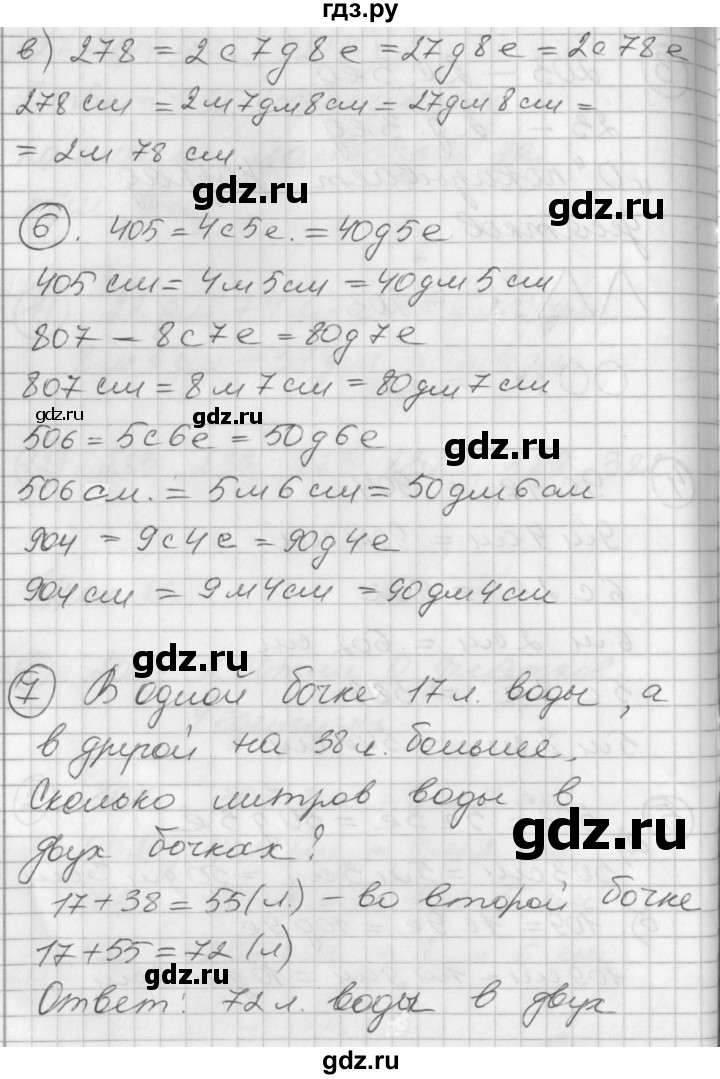 гдз.ру
в) 278 = 2с7д8е = 27д8е = 2с78е
278 см = 2м7дм8см = 27дм8см =
= 2м 78 см.
gdz.ru
gdz.ru
6. 405 = 4с5е. = 40д5е
405 см = 4м5см = 40дм5см
807 – 8с7е = 80д7е
807 см = 8м7см = 80дм7см
gdz.ru
gdz.ru
506 = 5с6е = 50д6е
gdz.ru
506 см. = 5м6см = 50дм6см
904 = 9с4е = 90д4е
904 см = 9м4см = 90дм4см
gdz.ru
7 В одной бочке 17 л. воды, а
в другой на 38 л. больше.
Сколько литров воды в
двух бочках?
gdz.ru
17 + 38 = 55 (л.) – во второй бочке
17 + 55 = 72 (л)
gdz.ru
Ответ: 72 л. воды в двух
gdz.ru